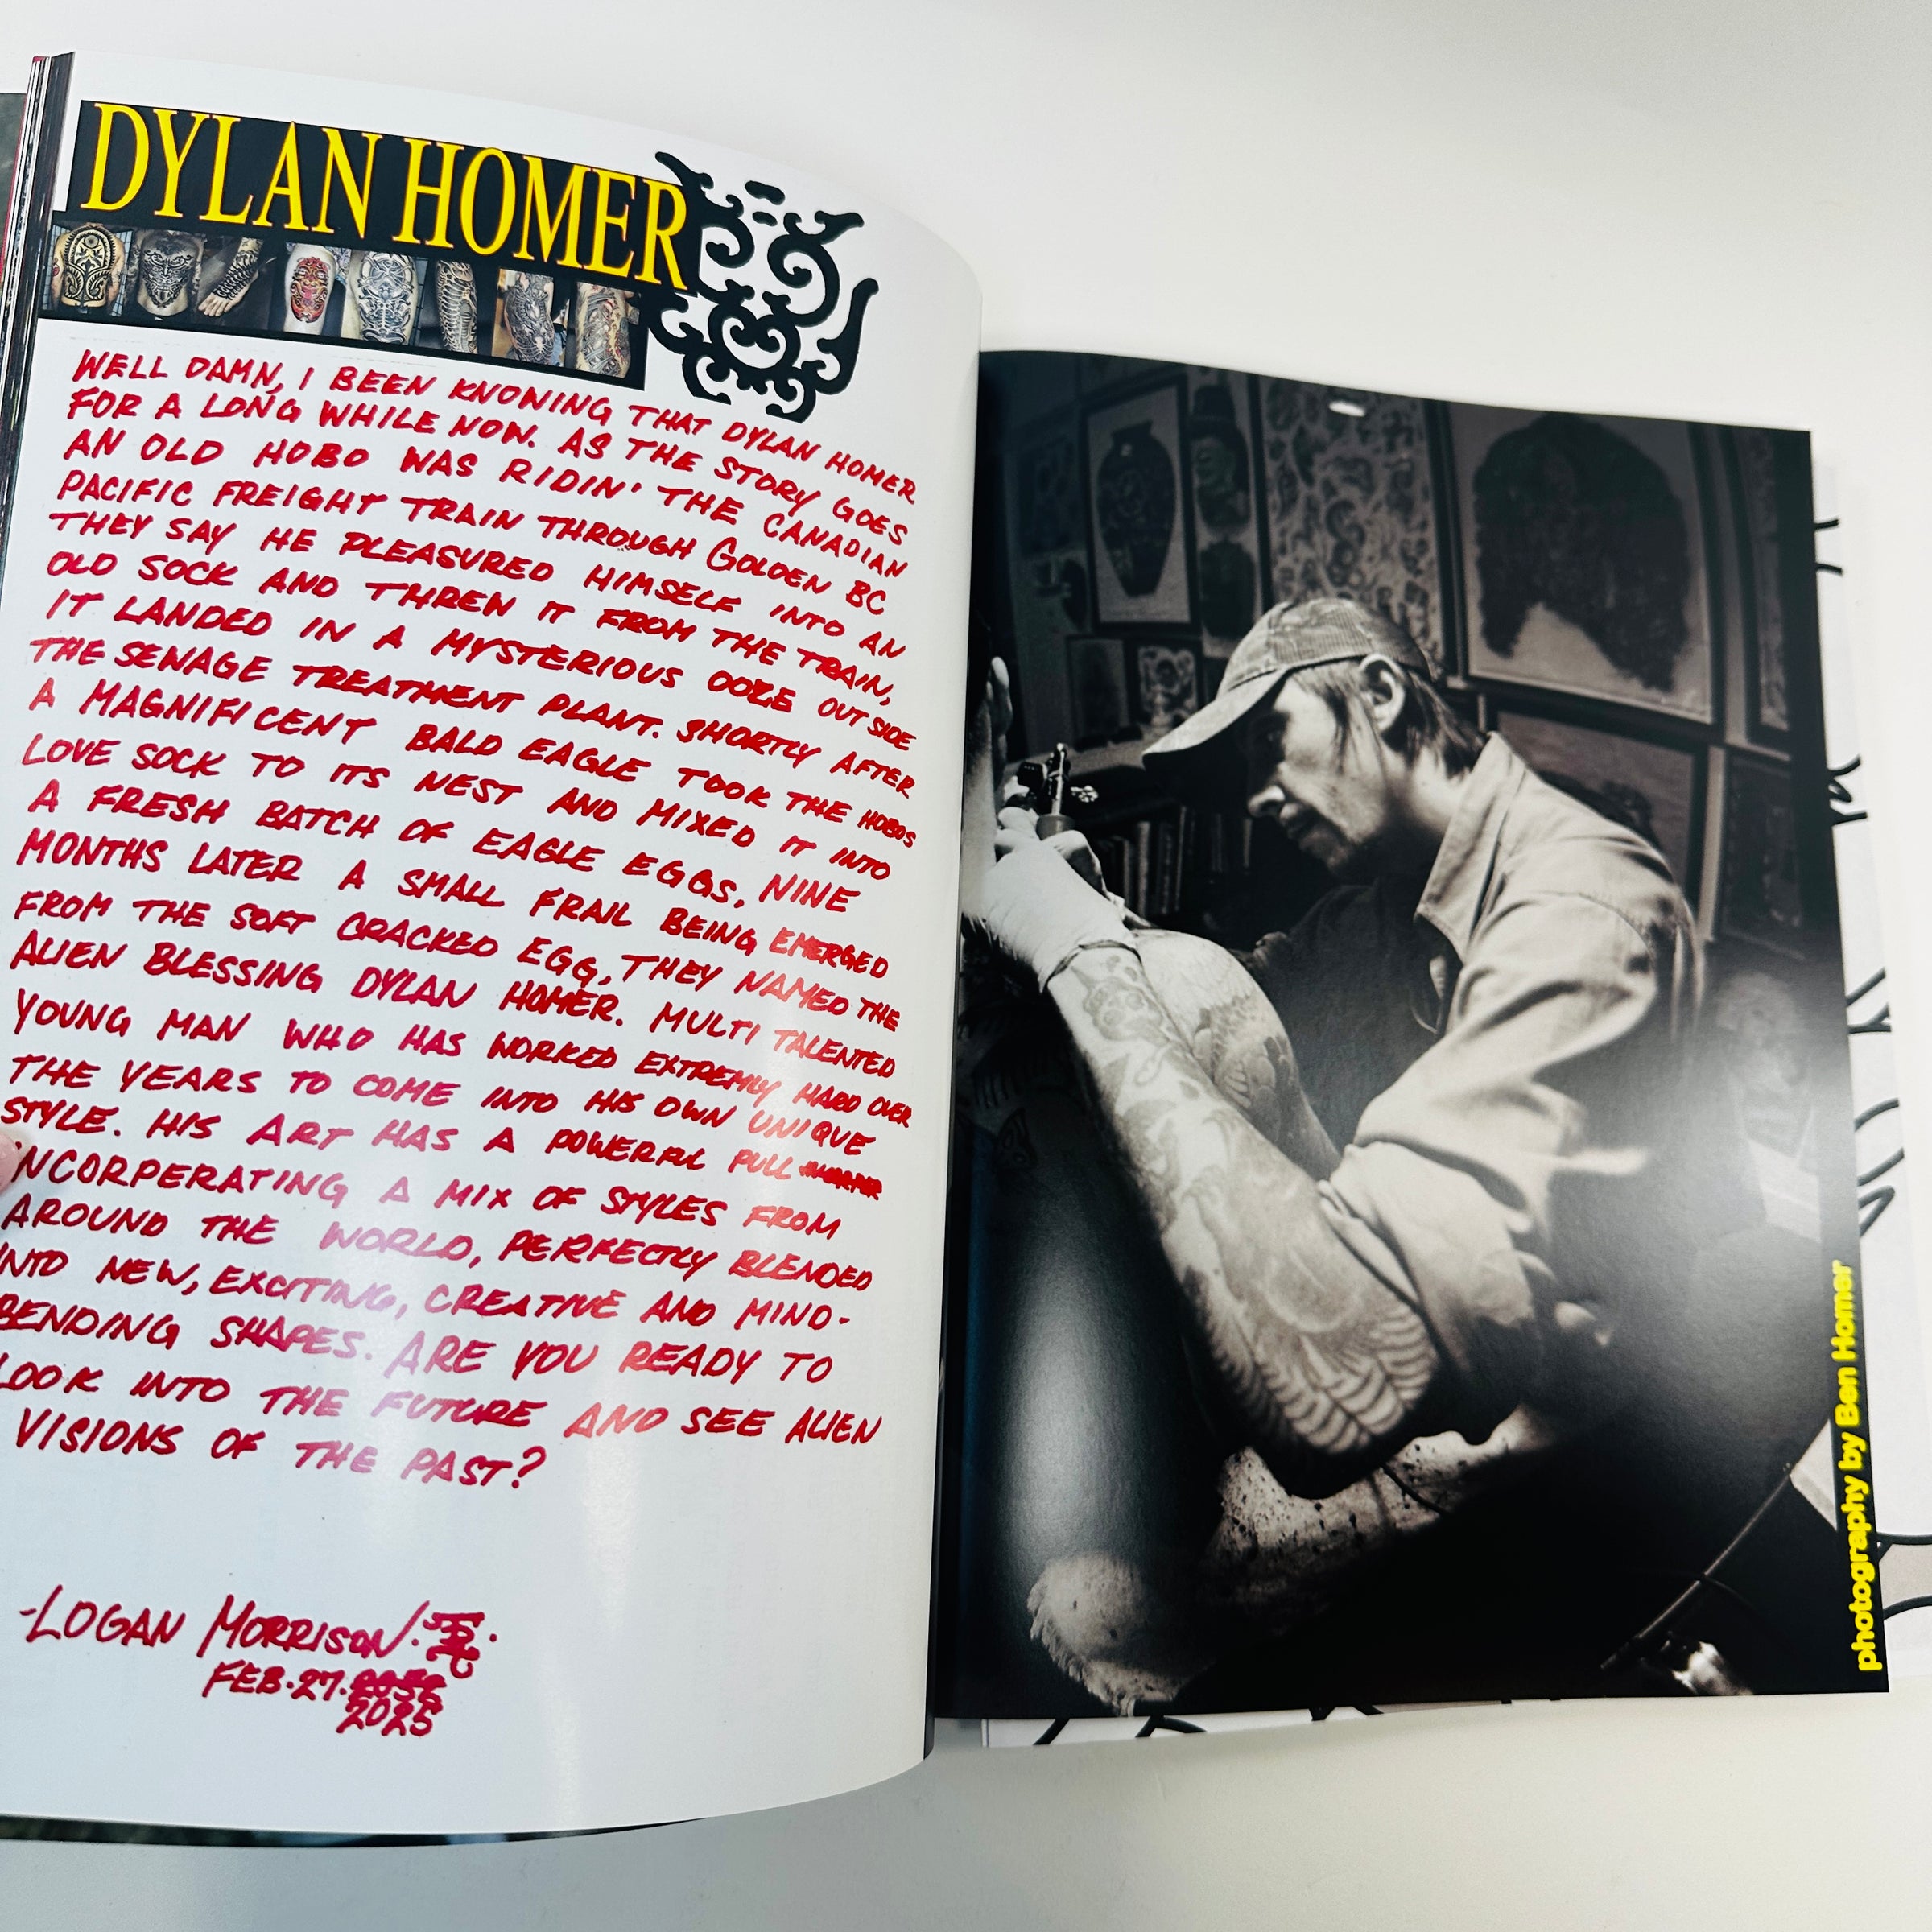 DYLAN HOMER
WELL DAMN, I BEEN KNOWING THAT DYLAN HOMER
FOR A LONG WHILE NOW. AS THE STORY GOES
AN OLD HOBO WAS RIDIN' THE CANADIAN
PACIFIC FREIGHT TRAIN THROUGH GOLDEN BC
THEY SAY HE PLEASURED HIMSELF INTO AN
OLD SOCK AND THREW IT FROM THE TRAIN,
IT LANDED IN A MYSTERIOUS OOZE OUTSIDE
THE SEWAGE TREATMENT PLANT. SHORTLY AFTER
A MAGNIFICENT BALD EAGLE TOOK THE HOBOS
LOVE SOCK TO ITS NEST AND MIXED IT INTO
A FRESH BATCH OF EAGLE EGGS, NINE
MONTHS LATER A SMALL FRAIL BEING EMERGED
FROM THE SOFT CRACKED EGG, THEY NAMED THE
ALIEN BLESSING DYLAN HOMER. MULTI TALENTED
YOUNG MAN WHO HAS WORKED EXTREMLY HARD OVER
THE YEARS TO COME INTO HIS OWN UNIQUE
STYLE. HIS ART HAS A POWERFUL PULL
INCORPERATING A MIX OF STYLES FROM
AROUND THE WORLD, PERFECTLY BLENDED
INTO NEW, EXCITING, CREATIVE AND MIND-
BENDING SHAPES. ARE YOU READY TO
LOOK INTO THE FUTURE AND SEE ALIEN
VISIONS OF THE PAST?
-LOGAN MORRISON.
FEB.27.
2025
photography by Ben Homer